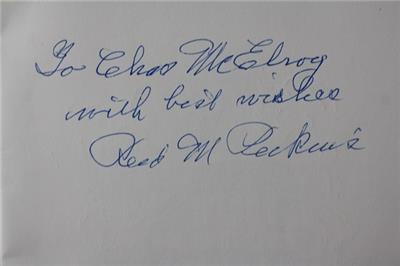 To Chas McElroy
with best wishes
Reed M Perkins